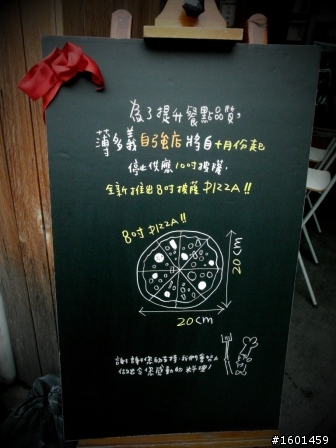 為了提升餐點品質,
薄多義自強店將自十月份起
停止供應10吋披薩,
全新推出8吋披薩PIZZA!!
8吋PIZZA!!
20cm
20cm
謝謝您的支持,我們會努力
做出令您感動的料理!
#1601459